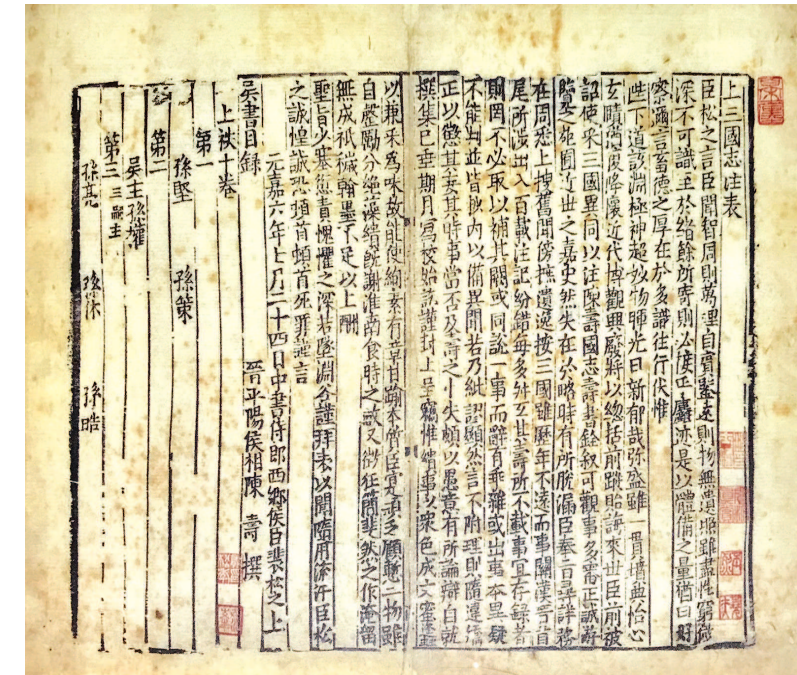 上三國志注表
臣松之言臣聞智周則萬理自賓鑒遠則物無遺照雖盡性窮微
深不可識至於緒餘所寄則必接乎麤迹是以體備之量猶曰好
察邇言畜德之厚在於多識往行伏惟
陛下道該淵極神超妙物暉光日新郁哉弥盛雖一貫墳典怡心
玄賾猶復降懷近代博觀興廢將以總括前蹤貽誨來世臣前被
詔使采三國異同以注陳壽國志壽書銓叙可觀事多審正誠游
覽之苑囿近世之嘉史然失在於略時有所脫漏臣奉旨尋詳務
在周悉上搜舊聞傍摭遺逸按三國雖歷年不遠而事關漢晉首
尾所涉出入百載注記紛錯每多舛互其壽所不載事宜存録者
則罔不必取以補其闕或同說一事而辭有乖雜或出事本異疑
不能判並皆抄内以備異聞若乃紕謬顯然言不附理則隨違矯
正以懲其妄其時事當否及壽之小失頗以愚意有所論辯自就
撰集已垂期月寫校始訖謹封上呈竊惟繢事以衆色成文蜜蜂
以兼采爲味故能使絢素有章甘踰本質臣寔頑乏顧慙二物雖
自罄勵分絕藻繢旣謝淮南食時之敏又微狂簡斐然之作淹留
無成祇穢翰墨不足以上酬
聖旨少塞愆責愧懼之深若墜淵谷謹拜表以聞隨用流汗臣松
之誠惶誠恐頓首頓首死罪謹言
元嘉六年七月二十四日中書侍郎西鄉侯臣裴松之上
吳書目録 晉平陽侯相陳 壽 撰
上袟十卷
第一
孫堅 孫策
第二
吳主孫權
第三 三嗣主
孫亮 孫休 孫晧